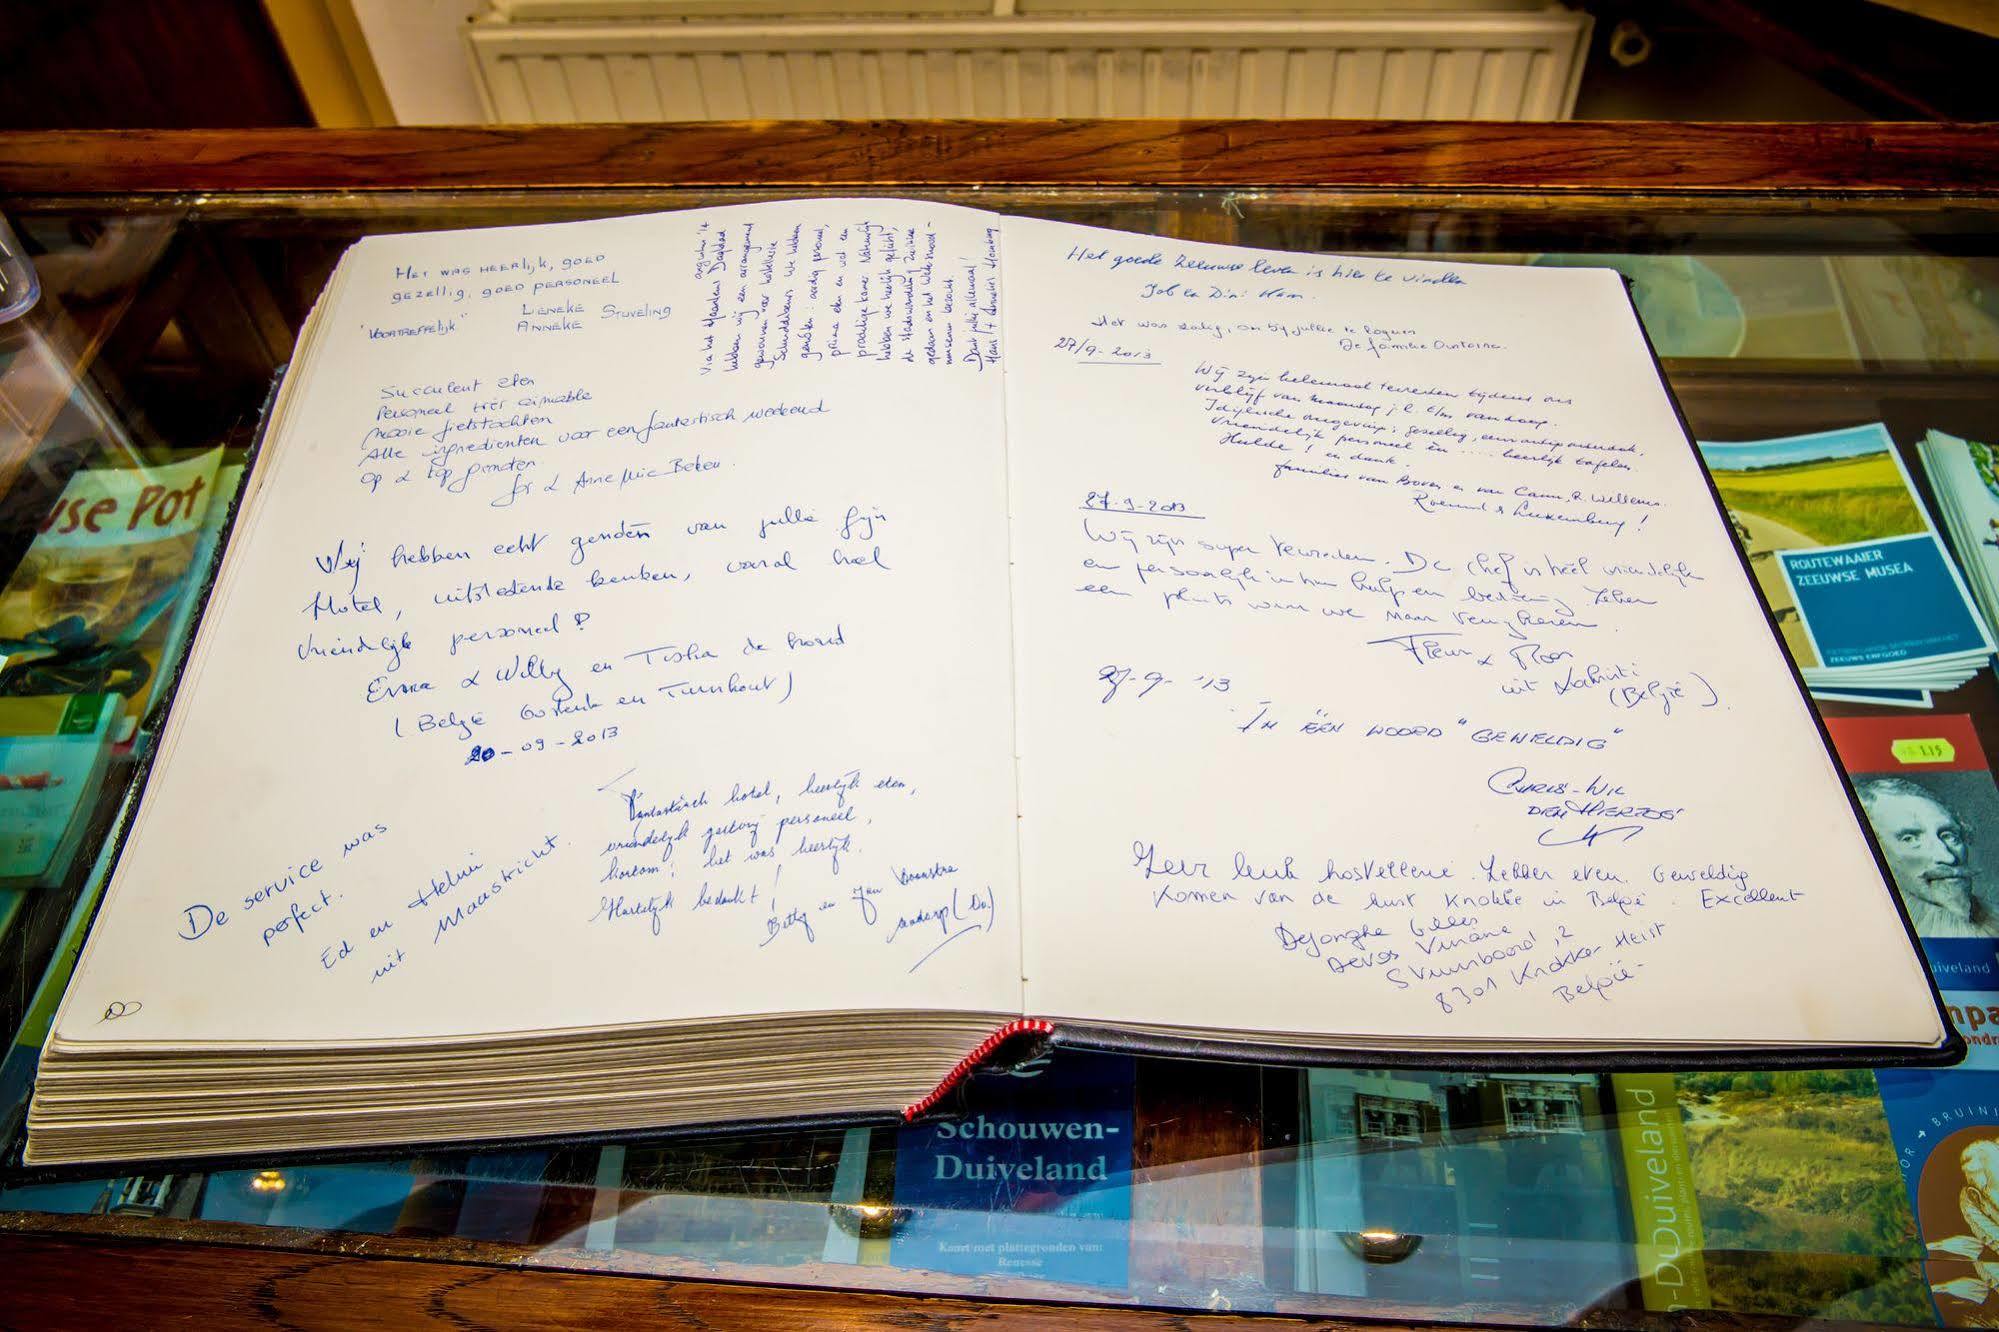 HET WAS HEERLIJK, GOED
GEZELLIG, GOED PERSONEEL
"VOORTREFFELIJK"
LIENEKE STUVELING
ANNEKE
Via het Haarlems Dagblad
hebben wij een arrangement
gewonnen voor hostellerie
Schuddebeurs. We hebben
genoten: aardig personeel,
prima eten en wel een
prachtige kamer. Natuurlijk
hebben we heerlijk gefietst,
de stadswandeling Zierikzee
gedaan en het Watersnood-
museum bezocht.
Dank jullie allemaal!
Hans + Annelies
Succulent eten
Personeel très aimable
Mooie fietstochten
Alle ingrediënten voor een fantastisch weekend
op d top
& AnneMie
Wij hebben echt genoten van jullie fijn
Hotel, uitstekende keuken, vooral heel
vriendelijk personeel!
Erna & Willy en Tisha de hond
(België Oostende en Turnhout)
20-09-2013
De service was
perfect.
Ed en Helmi
uit Maastricht.
Fantastisch hotel, heerlijk eten,
vriendelijk gastvrij personeel,
kortom: het was heerlijk.
Hartelijk bedankt!
Betty en Jan
(Dr.)
Het goede Zeeuwse leven is hier te vinden
Job en Dini Ham.
Het was zalig, om bij jullie te logeren
De familie
27/9-2013
Wij zijn helemaal tevreden tijdens ons
verblijf van maandag j.l. t/m vandaag.
Idyllische omgeving; gezellig,
vriendelijk personeel én .... heerlijk tafelen.
Hulde! en dank.
families van en van R. Willems.
Roermond & Luxemburg!
27-9-2013
Wij zijn super tevreden. De chef is heel vriendelijk
en persoonlijk in hun hulp en bediening. Zeker
een plaats waar we naar
Fleur & Floor
uit
(België).
27-9-'13
IN ÉÉN WOORD "GEWELDIG"
CHRIS-WIL
DEN HERTOG
Zeer leuk hostellerie. Lekker eten. Geweldig
Komen van de kust Knokke in België. Excellent
Dejonghe Gilles
Devos Viviane
, 2
8301 Knokke Heist
België
USE POT
ROUTEWAAIER
ZEEUWSE MUSEA
ZEEUWS ERFGOED
1.15
Duiveland
Schouwen-
Duiveland
Kaart met plattegronden van:
Renesse
-Duiveland
BRUIN